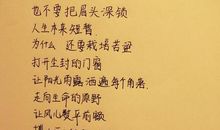 也不要把眉头深锁
人生本来短暂
为什么 还要栽培苦涩
打开尘封的门窗
让阳光雨露洒遍每个角落
走向生命的原野
让风儿熨平前额